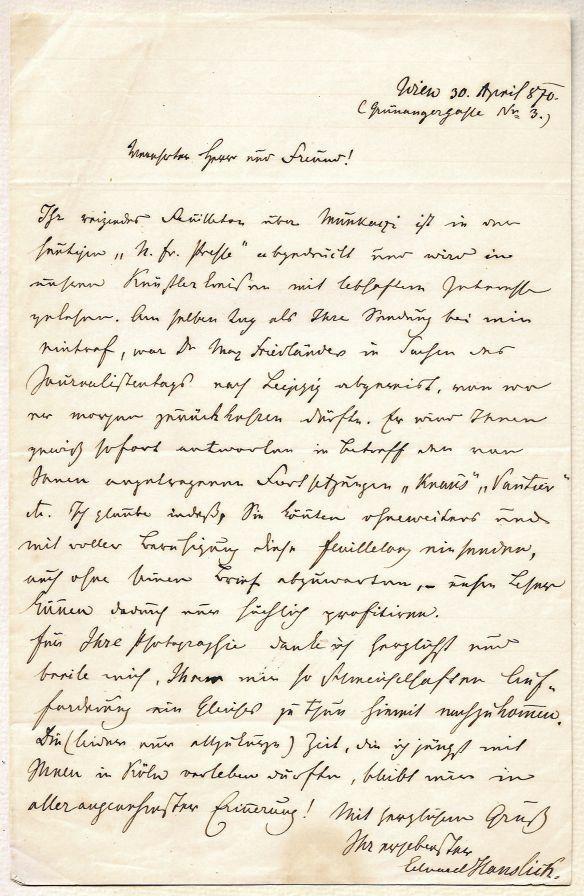 Wien 30. April 870.
(Grünangergasse Nr. 3.)
Verehrter Herr und Freund!
Ihr reizendes Feuilleton über Munkaczi ist in der
heutigen „N. fr. Presse" abgedruckt und wird in
unseren Künstlerkreisen mit lebhaftem Interesse
gelesen. Am selben Tag als Ihre Sendung bei mir
eintraf, war Dr Max Friedländer in Sachen des
Journalistentags nach Leipzig abgereist, von wo
er morgen zurückkehren dürfte. Er wird Ihnen
gewiß sofort antworten in Betreff der von
Ihnen angetragenen Fortsetzungen „Knaus", „Vautier"
etc. Ich glaube indeß, Sie könnten ohneweiters und
mit voller Beruhigung diese Feuilletons einsenden,
auch ohne seinen Brief abzuwarten, – unsere Leser
können dadurch nur höchlich profitiren.
Für Ihre Photographie danke ich herzlichst und
beeile mich, Ihrer mir so schmeichelhaften Auf-
forderung ein Gleiches zu thun hiemit nachzukommen.
Die (leider nur allzukurze) Zeit, die ich jüngst mit
Ihnen in Köln verleben durfte, bleibt mir in
allerangenehmster Erinerung! Mit herzlichem Gruß
Ihr ergebenster
Eduard Hanslick.